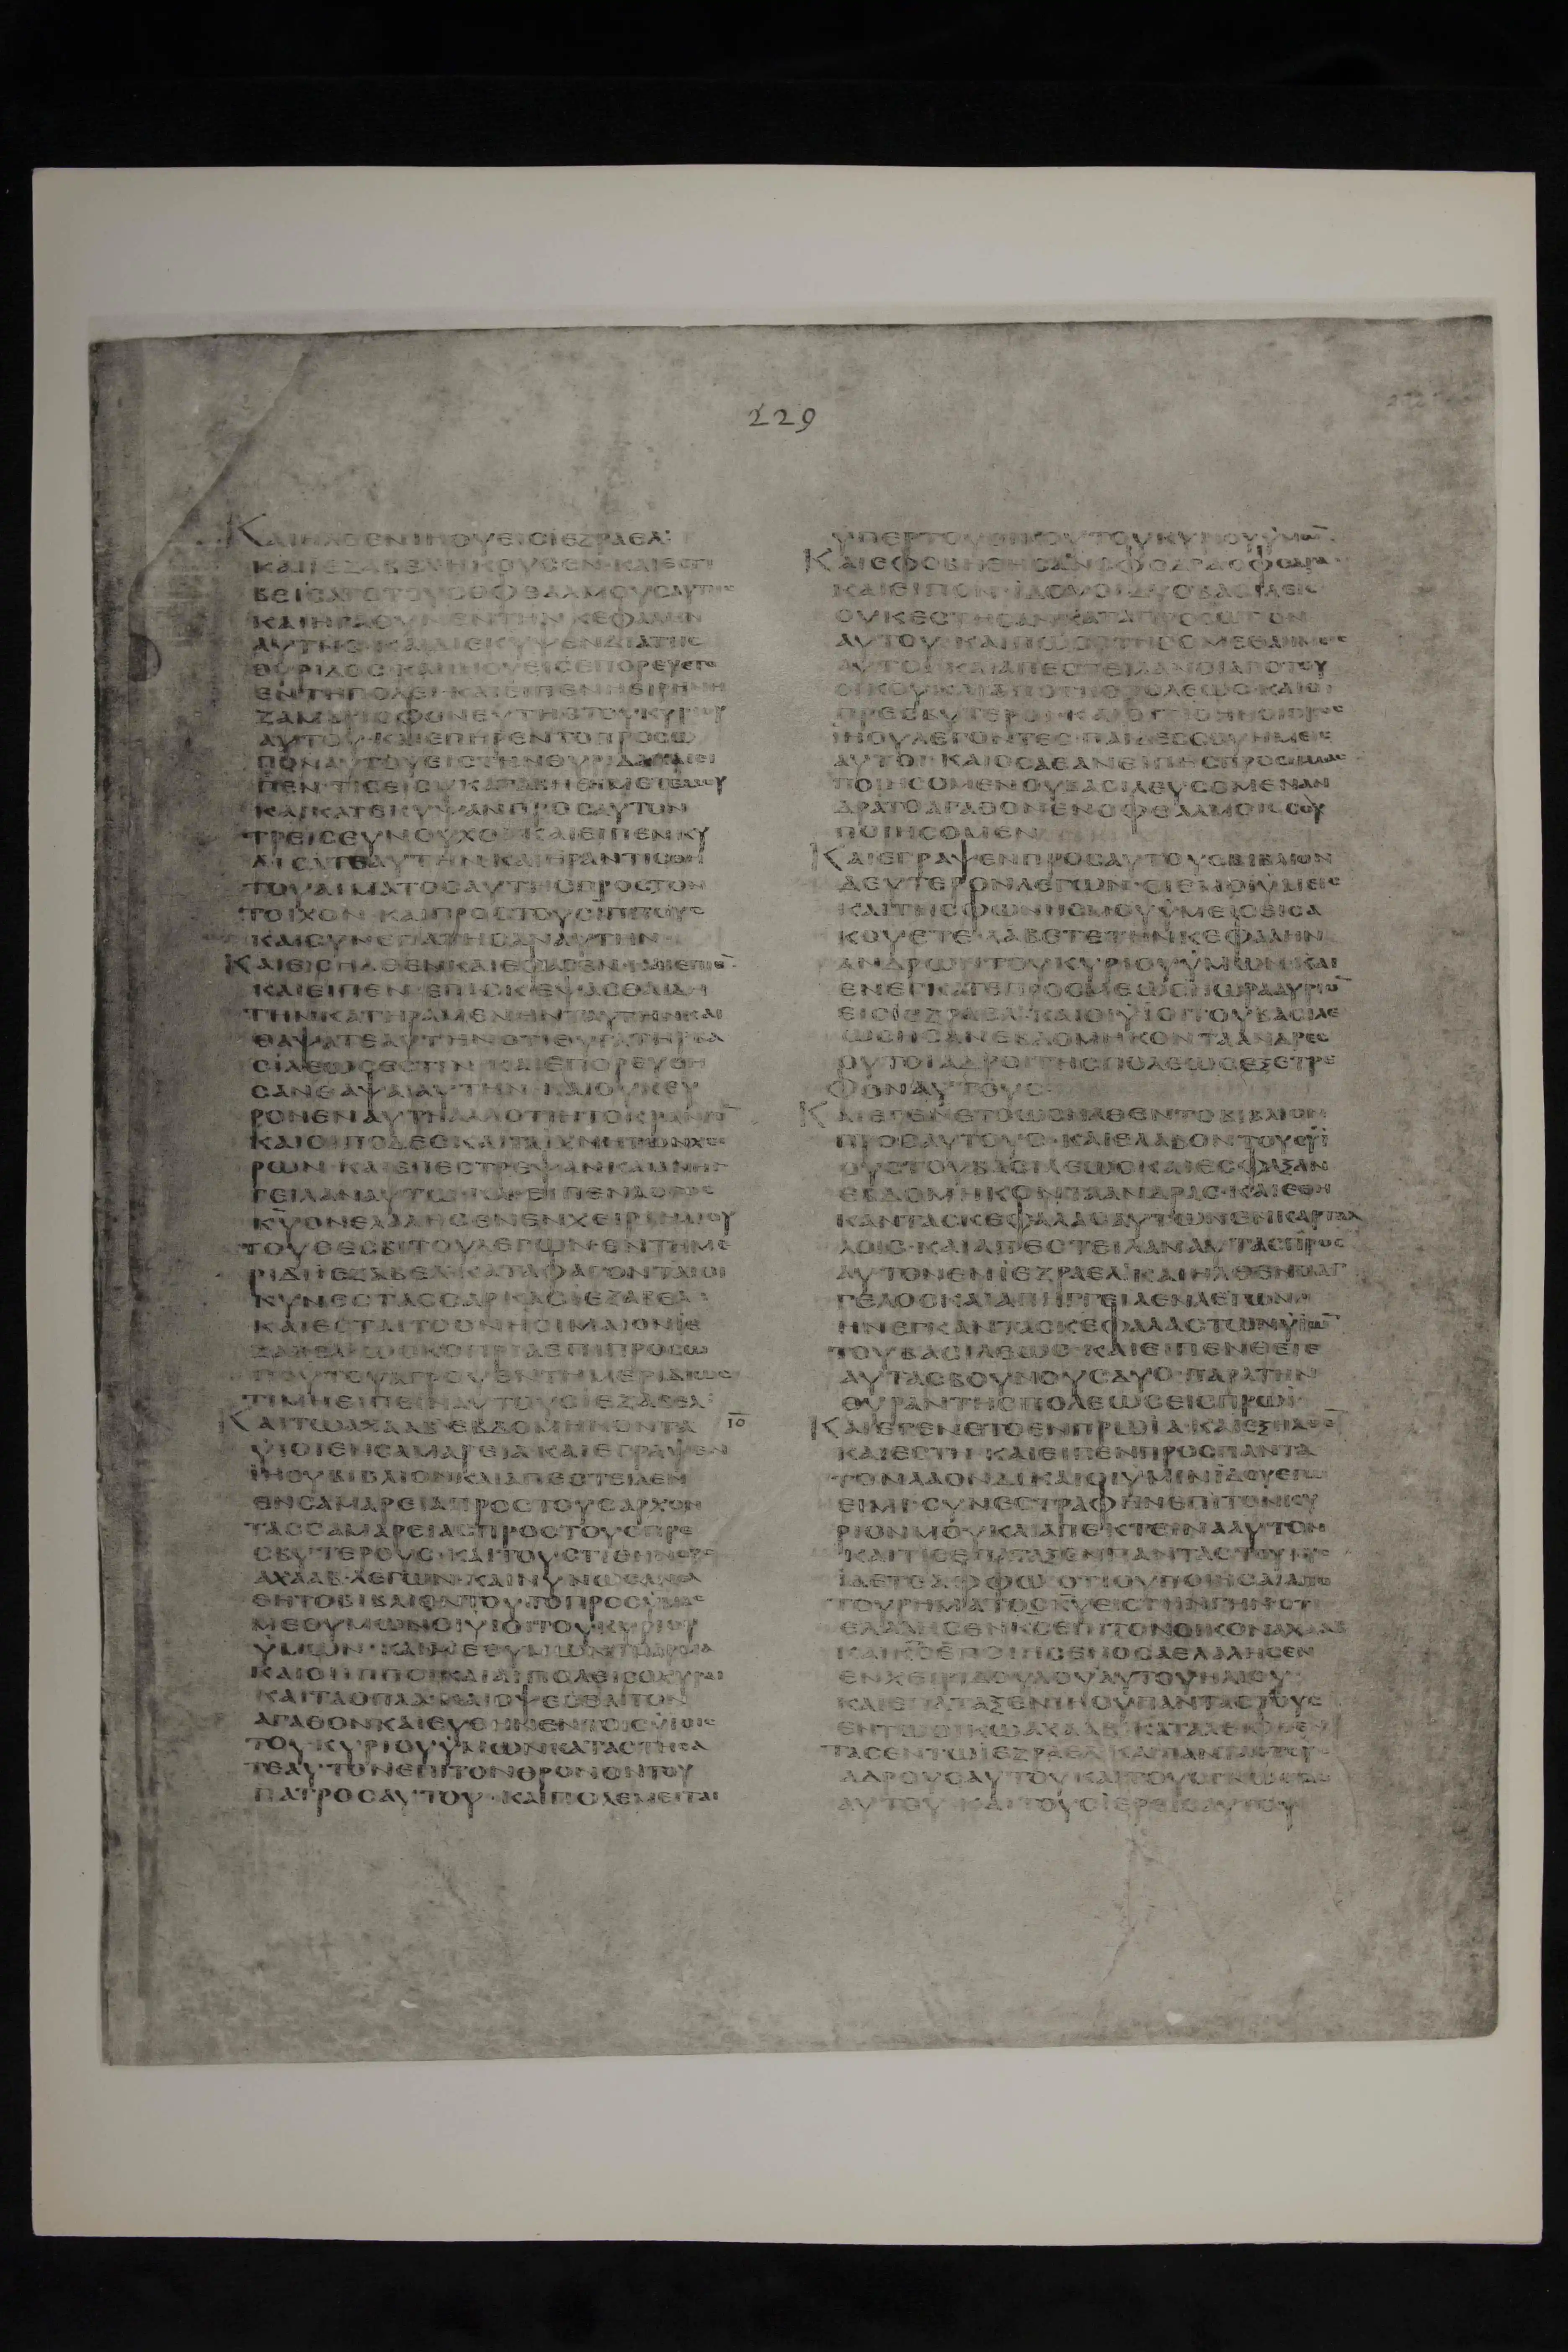 229
ΚΑΙΗΛΘΕΝΙΗΟΥΕΙΣΙΕΖΡΑΕΛ
ΚΑΙΙΕΖΑΒΕΛΗΚΟΥΣΕΝ·ΚΑΙΕΣΤΙ
ΚΑΙΗΓΑΘΥΝΕΝΤΗΝΚΕΦΑΛΗΝ
ΑΥΤΗΣ·ΚΑΙΔΙΕΚΥΨΕΝΔΙΑΤΗΣ
ΘΥΡΙΔΟΣ·ΚΑΙΙΗΟΥΕΙΣΕΠΟΡΕΥΕΤΟ
ΕΝΤΗΠΟΛΕΙ·ΚΑΙΕΙΠΕΝΗΕΙΡΗΝΗ
ΖΑΜΒΡΙΟΦΟΝΕΥΤΗΣΤΟΥΚΥΡΙΟΥ
ΑΥΤΟΥ·ΚΑΙΕΠΗΡΕΝΤΟΠΡΟΣΩ
ΠΟΝΑΥΤΟΥΕΙΣΤΗΝΘΥΡΙΔΑΚΑΙΕΙ
ΚΑΙΚΑΤΕΚΥΨΑΝΠΡΟΣΑΥΤΟΝ
ΤΡΕΙΣΕΥΝΟΥΧΟΙ·ΚΑΙΕΙΠΕΝΚΥ
ΛΙΣΑΤΕΑΥΤΗΝ·ΚΑΙΗΡΑΝΤΙΣΘΗ
ΤΟΥΑΙΜΑΤΟΣΑΥΤΗΣΠΡΟΣΤΟΝ
ΤΟΙΧΟΝ·ΚΑΙΠΡΟΣΤΟΥΣΙΠΠΟΥΣ
ΚΑΙΣΥΝΕΠΑΤΗΣΑΝΑΥΤΗΝ
ΚΑΙΕΙΣΗΛΘΕΝΚΑΙΕΦΑΓΕΝ·ΚΑΙΕΠΙΕ̅
ΚΑΙΕΙΠΕΝ·ΕΠΙΣΚΕΨΑΣΘΑΙΔΗ
ΤΗΝΚΑΤΗΡΑΜΕΝΗΝΤΑΥΤΗΝΚΑΙ
ΘΑΨΑΤΕΑΥΤΗΝΟΤΙΘΥΓΑΤΗΡΒΑ
ΣΙΛΕΩΣΕΣΤΙΝ·ΚΑΙΕΠΟΡΕΥΘΗ
ΣΑΝΘΑΨΑΙΑΥΤΗΝ·ΚΑΙΟΥΚΕΥ
ΡΟΝΕΝΑΥΤΗΑΛΛΟΤΙΗΤΟΚΡΑΝΙΟ̅
ΚΑΙΟΙΠΟΔΕΣΚΑΙΤΑΙΧΝΗΤΩΝΧΕΙ
ΡΩΝ·ΚΑΙΕΠΕΣΤΡΕΨΑΝΚΑΙΑΝΗΓ
ΓΕΙΛΑΝΑΥΤΩ·ΚΑΙΕΙΠΕΝΛΟΓΟΣ
Κ̅Υ̅ΟΝΕΛΑΛΗΣΕΝΕΝΧΕΙΡΙΗΛΙΟΥ
ΤΟΥΘΕΣΒΙΤΟΥΛΕΓΩΝ·ΕΝΤΗΜΕ
ΡΙΔΙΙΕΖΑΒΕΛΚΑΤΑΦΑΓΟΝΤΑΙΟΙ
ΚΥΝΕΣΤΑΣΣΑΡΚΑΣΙΕΖΑΒΕΛ
ΚΑΙΕΣΤΑΙΤΟΘΝΗΣΙΜΑΙΟΝΙΕ
ΖΑΒΕΛΩΣΚΟΠΡΙΑΕΠΙΠΡΟΣΩ
ΠΟΥΤΟΥΑΓΡΟΥΕΝΤΗΜΕΡΙΔΙΩΣ
ΤΙΜΗΕΙΠΕΙΝΑΥΤΟΥΣΙΕΖΑΒΕΛ
ΚΑΙΤΩΑΧΑΑΒ·ΕΒΔΟΜΗΚΟΝΤΑ 10
ΥΙΟΙΕΝΣΑΜΑΡΕΙΑΚΑΙΕΓΡΑΨΕΝ
ΙΗΟΥΒΙΒΛΙΟΝΚΑΙΑΠΕΣΤΕΙΛΕΝ
ΕΝΣΑΜΑΡΕΙΑΠΡΟΣΤΟΥΣΑΡΧΟΝ
ΤΑΣΣΑΜΑΡΕΙΑΣΠΡΟΣΤΟΥΣΠΡΕ
ΣΒΥΤΕΡΟΥΣ·ΚΑΙΤΟΥΣΤΙΘΗΝΟΥΣ
ΑΧΑΑΒ·ΛΕΓΩΝ·ΚΑΙΝΥΝΩΣΑΝΕΛ
ΘΗΤΟΒΙΒΛΙΟΝΤΟΥΤΟΠΡΟΣΥΜΑΣ
ΜΕΘΥΜΩΝΟΙΥΙΟΙΤΟΥΚΥΡΙΟΥ
ΥΜΩΝ·ΚΑΙΜΕΘΥΜΩΝΤΑΑΡΜΑΤΑ
ΚΑΙΟΙΙΠΠΟΙΚΑΙΑΙΠΟΛΕΙΣΟΧΥΡΑΙ
ΚΑΙΤΑΟΠΛΑ·ΚΑΙΟΨΕΣΘΑΙΤΟΝ
ΑΓΑΘΟΝΚΑΙΕΥΘΗΚΕΝΤΟΙΣΥΙΟΙΣ
ΤΟΥΚΥΡΙΟΥΥΜΩΝΚΑΤΑΣΤΗΣΑ
ΤΕΑΥΤΟΝΕΠΙΤΟΝΘΡΟΝΟΝΤΟΥ
ΠΑΤΡΟΣΑΥΤΟΥ·ΚΑΙΠΟΛΕΜΕΙΤΑΙ
ΥΠΕΡΤΟΥΟΙΚΟΥΤΟΥΚΥΡΙΟΥΥΜΩ̅
ΚΑΙΕΦΟΒΗΘΗΣΑΝΣΦΟΔΡΑΣΦΟΔΡΑ
ΚΑΙΕΙΠΟΝ·ΙΔΟΥΟΙΔΥΟΒΑΣΙΛΕΙΣ
ΟΥΚΕΣΤΗΣΑΝΚΑΤΑΠΡΟΣΩΠΟΝ
ΑΥΤΟΥ·ΚΑΙΠΩΣΣΤΗΣΟΜΕΘΑΗΜΕΙΣ
ΑΥΤΟΙ·ΚΑΙΑΠΕΣΤΕΙΛΑΝΟΙΑΠΟΤΟΥ
ΟΙΚΟΥΚΑΙΑΠΟΤΗΣΠΟΛΕΩΣ·ΚΑΙΟΙ
ΙΗΟΥΛΕΓΟΝΤΕΣ·ΠΑΙΔΕΣΣΟΥΗΜΕΙΣ
ΑΥΤΟΙ·ΚΑΙΟΣΑΕΑΝΕΙΠΗΣΠΡΟΣΗΜΑΣ
ΠΟΙΗΣΟΜΕΝΟΥΒΑΣΙΛΕΥΣΟΜΕΝΑΝ
ΔΡΑΤΟΑΓΑΘΟΝΕΝΟΦΘΑΛΜΟΙΣΣΟΥ
ΠΟΙΗΣΟΜΕΝ
ΚΑΙΕΓΡΑΨΕΝΠΡΟΣΑΥΤΟΥΣΒΙΒΛΙΟΝ
ΔΕΥΤΕΡΟΝΛΕΓΩΝ·ΕΙΕΜΟΙΥΜΕΙΣ
ΚΑΙΤΗΣΦΩΝΗΣΜΟΥΥΜΕΙΣΕΙΣΑ
ΚΟΥΕΤΕ·ΛΑΒΕΤΕΤΗΝΚΕΦΑΛΗΝ
ΑΝΔΡΩΝΤΟΥΚΥΡΙΟΥΥΜΩΝΚΑΙ
ΕΝΕΓΚΑΤΕΠΡΟΣΜΕΩΣΗΩΡΑΑΥΡΙΟ̅
ΕΙΣΙΕΖΡΑΕΛ·ΚΑΙΟΙΥΙΟΙΤΟΥΒΑΣΙΛΕ
ΩΣΗΣΑΝΕΒΔΟΜΗΚΟΝΤΑΑΝΔΡΕΣ
ΟΥΤΟΙΑΔΡΟΙΤΗΣΠΟΛΕΩΣΕΞΕΤΡΕ
ΦΟΝΑΥΤΟΥΣ
ΚΑΙΕΓΕΝΕΤΟΩΣΗΛΘΕΝΤΟΒΙΒΛΙΟΝ
ΠΡΟΣΑΥΤΟΥΣ·ΚΑΙΕΛΑΒΟΝΤΟΥΣΥΙ
ΟΥΣΤΟΥΒΑΣΙΛΕΩΣΚΑΙΕΣΦΑΞΑΝ
ΕΒΔΟΜΗΚΟΝΤΑΑΝΔΡΑΣ·ΚΑΙΕΘΗ
ΚΑΝΤΑΣΚΕΦΑΛΑΣΑΥΤΩΝΕΝΚΑΡΤΑΛ
ΛΟΙΣ·ΚΑΙΑΠΕΣΤΕΙΛΑΝΑΥΤΑΣΠΡΟΣ
ΑΥΤΟΝΕΝΙΕΖΡΑΕΛ·ΚΑΙΗΛΘΕΝΟΑΓ
ΓΕΛΟΣΚΑΙΑΠΗΓΓΕΙΛΕΝΛΕΓΩΝ
ΗΝΕΓΚΑΝΤΑΣΚΕΦΑΛΑΣΤΩΝΥΙΩ̅
ΤΟΥΒΑΣΙΛΕΩΣ·ΚΑΙΕΙΠΕΝΘΕΤΕ
ΑΥΤΑΣΒΟΥΝΟΥΣΔΥΟ·ΠΑΡΑΤΗΝ
ΘΥΡΑΝΤΗΣΠΟΛΕΩΣΕΙΣΠΡΩΙ
ΚΑΙΕΓΕΝΕΤΟΕΝΠΡΩΙΑ·ΚΑΙΕΞΗΛΘΕ̅
ΚΑΙΕΣΤΗ·ΚΑΙΕΙΠΕΝΠΡΟΣΠΑΝΤΑ
ΤΟΝΛΑΟΝΔΙΚΑΙΟΙΥΜΙΝΙΔΟΥΕΓΩ
ΕΙΜΙ·ΣΥΝΕΣΤΡΑΦΗΝΕΠΙΤΟΝΚΥ
ΡΙΟΝΜΟΥΚΑΙΑΠΕΚΤΕΙΝΑΑΥΤΟΝ
ΚΑΙΤΙΣΕΠΑΤΑΞΕΝΠΑΝΤΑΣΤΟΥΤΟΥΣ
ΙΔΕΤΕΑΦΦΩ·ΟΤΙΟΥΠΕΣΕΙΤΑΙΑΠΟ
ΤΟΥΡΗΜΑΤΟΣΚ̅Υ̅ΕΙΣΤΗΝΓΗΝΟΥ
ΕΛΑΛΗΣΕΝΚ̅Σ̅ΕΠΙΤΟΝΟΙΚΟΝΑΧΑΑΒ
ΚΑΙΚ̅Σ̅ΕΠΟΙΗΣΕΝΟΣΑΕΛΑΛΗΣΕΝ
ΕΝΧΕΙΡΙΔΟΥΛΟΥΑΥΤΟΥΗΛΙΟΥ
ΚΑΙΕΠΑΤΑΞΕΝΙΗΟΥΠΑΝΤΑΣΤΟΥΣ
ΤΑΣΕΝΤΩΙΕΖΡΑΕΛ
ΑΥΤΟΥ·ΚΑΙΤΟΥΣΙΕΡΕΙΣΑΥΤΟΥ